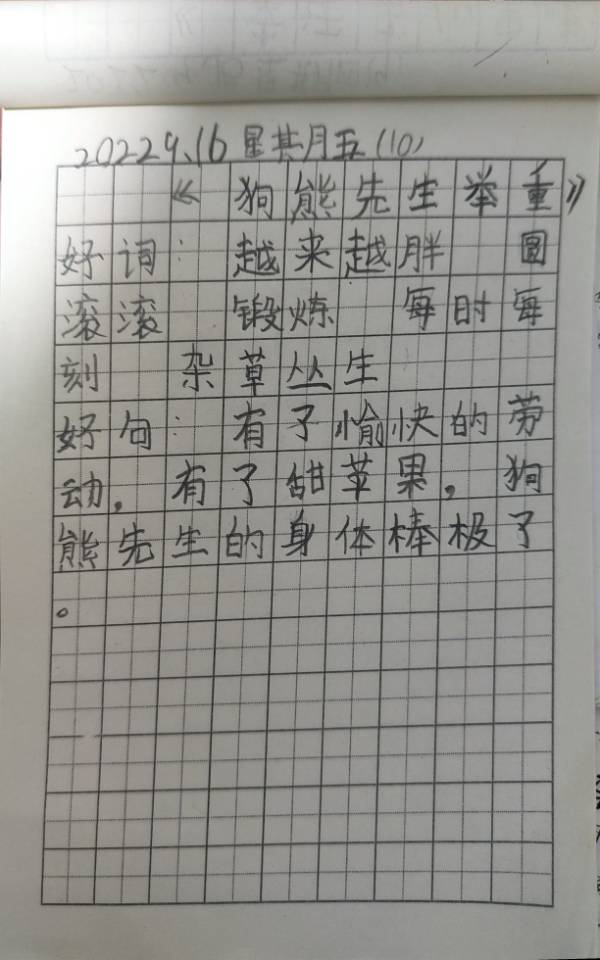 2022 9.16 星期五 (10)
《狗熊先生举重》
好词: 越来越胖 圆
滚滚 锻炼 每时每
刻 杂草丛生
好句: 有了愉快的劳
动,有了甜苹果,狗
熊先生的身体棒极了
。